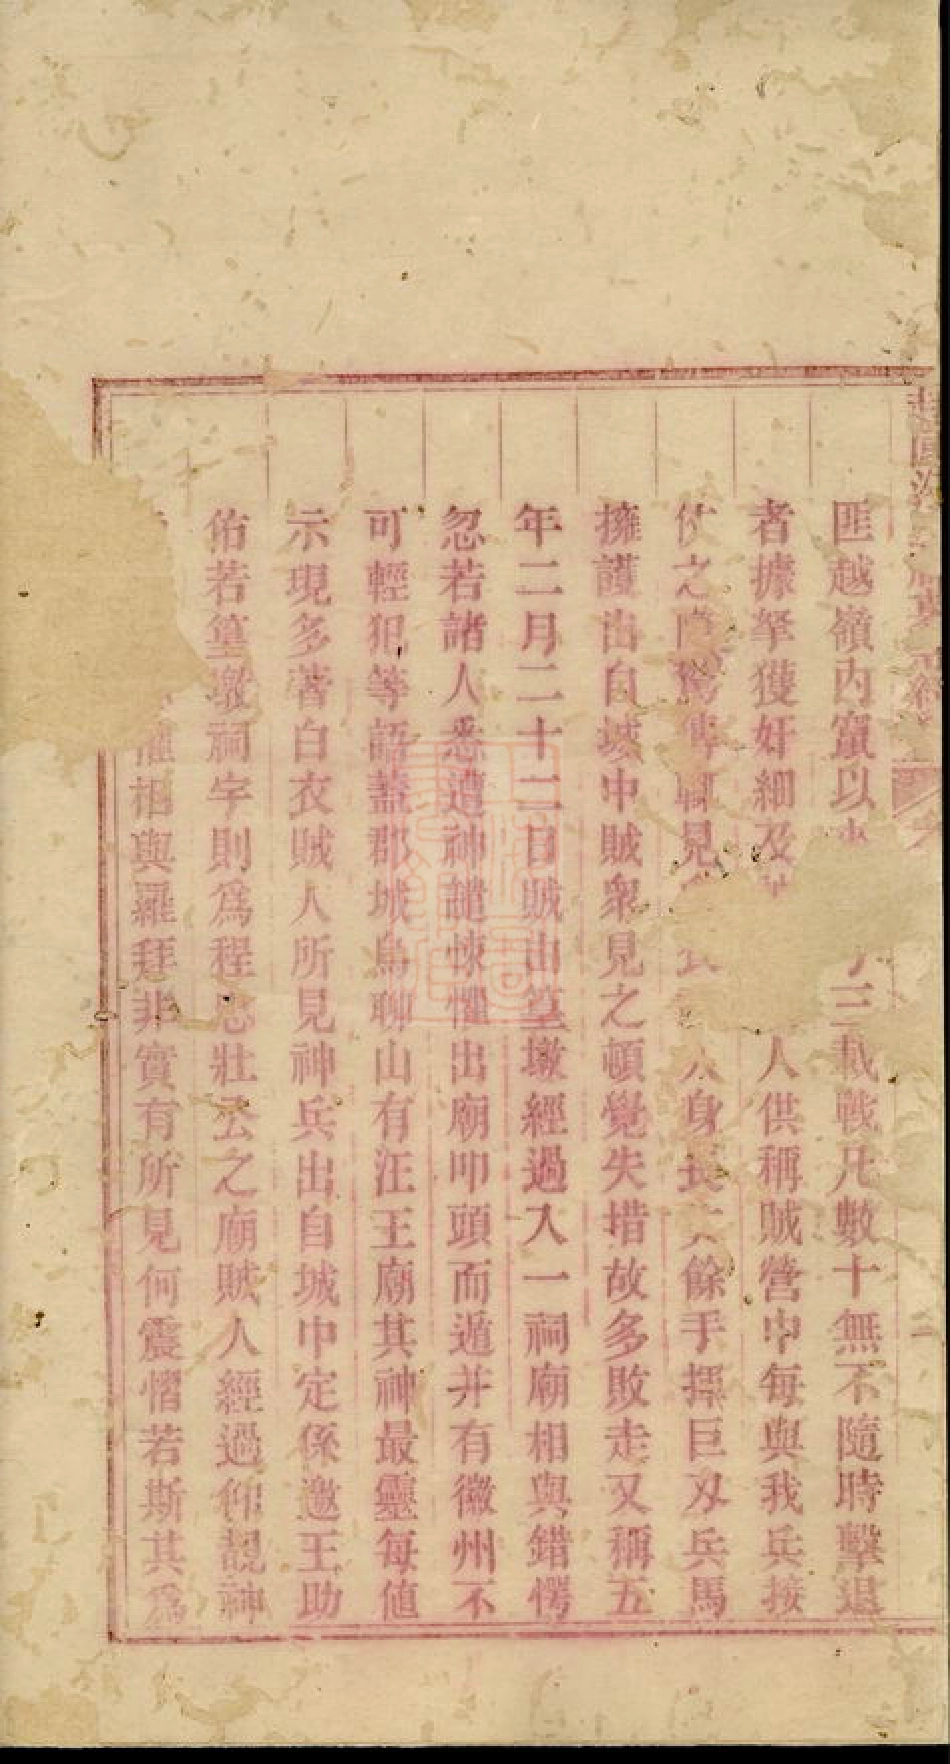 匪越嶺內竄以三載戰凡數十無不隨時擊退
者據拏獲奸細及人供稱賊營中每與我兵接
仗之見身長餘手揮巨刃兵馬
擁護出自城中賊衆見之頓覺失措故多敗走又稱五
年二月二十二日賊由篁墩經過入一祠廟相與錯愕
忽若諸人悉遭神譴悚懼出廟叩頭而遁并有徽州不
可輕犯等語蓋郡城烏聊山有汪王廟其神最靈每值
示現多著白衣賊人所見神兵出自城中定係邀王助
佑若篁墩祠宇則爲程忠壯公之廟賊人經過仰覩神
相與羅拜非實有所見何震慴若斯其爲